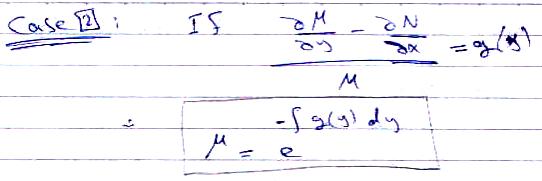 Case [2] : If (∂M/∂y - ∂N/∂x) / M = g(y)
∴ μ = e^(-∫ g(y) dy)